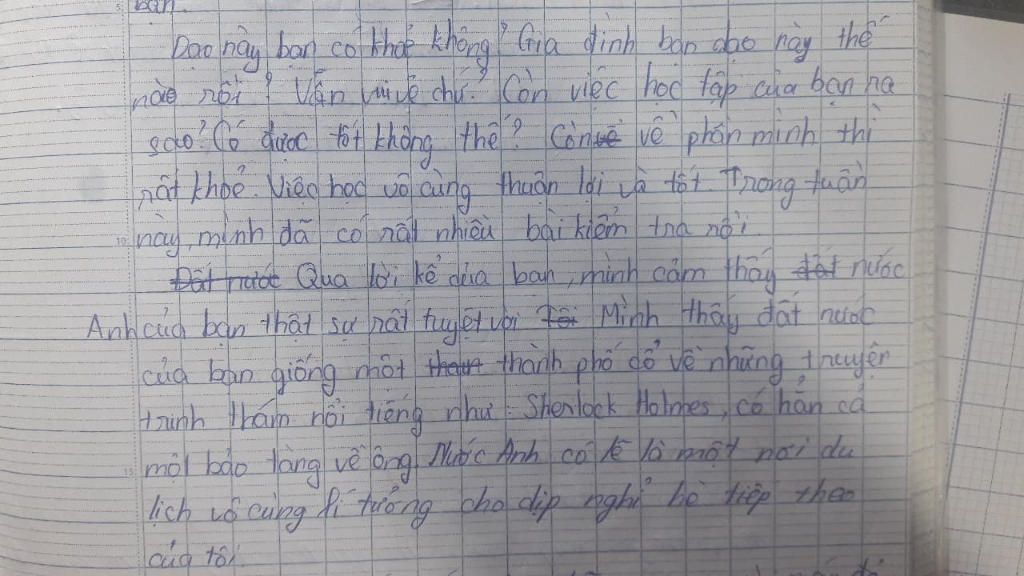 bạn.
Dạo này bạn có khoẻ không? Gia đình bạn dạo này thế
nào rồi? Vẫn vui vẻ chứ? Còn việc học tập của bạn ra
sao? Có được tốt không thế? Còn về về phần mình thì
rất khoẻ. Việc học vô cùng thuận lợi và tốt. Trong tuần
này, mình đã có rất nhiều bài kiểm tra rồi.
Đất nước Qua lời kể của bạn, mình cảm thấy đất nước
Anh của bạn thật sự rất tuyệt vời. Tôi Mình thấy đất nước
của bạn giống một thành phố cổ về những truyện
trinh thám nổi tiếng như: Sherlock Holmes, có hẳn cả
một bảo tàng về ông. Nước Anh có lẽ là một nơi du
lịch vô cùng lí tưởng cho dịp nghỉ hè tiếp theo
của tôi.